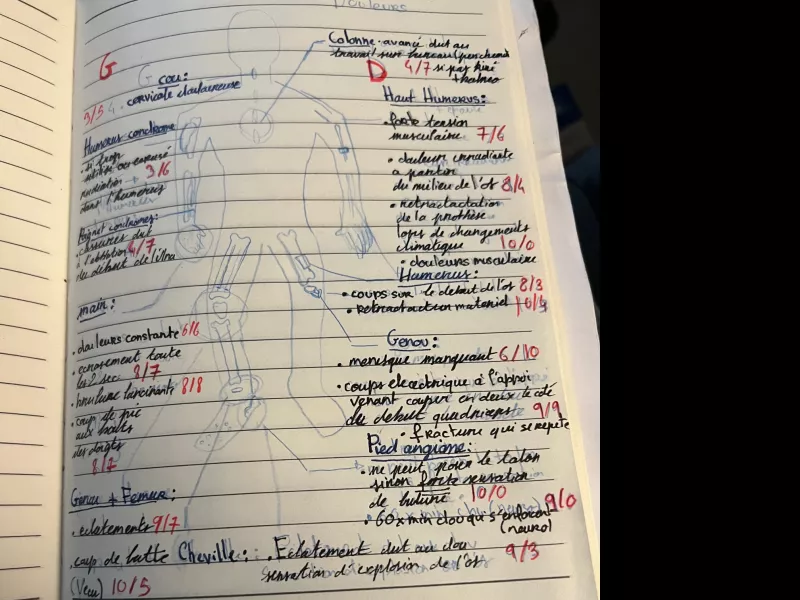 Douleurs
Colonne: avancé dut au
travail sur bureau/penchend
D 4/7 si pas kiné
+ balneo
G
cou:
3/5 cervicale douloureuse
Haut Humerus:
• forte tension
musculaire 7/6
• douleur immediante
a partir
du milieu de l'os 8/4
• retractactation
de la prothèse
lors de changements
climatique 10/0
• douleurs musculaire
Humerus condrome
• si trop
utilisé ou
3/6
dans l'humerus
Poignet condromes:
dut 4/7
à l'
du debut de l'ulna
Humerus:
• coups sur le debut de l'os 8/3
• retractaction materiel 10/
main:
• douleurs constante 6/6
• ecrasement toute
les 2 sec 8/7
• brulure lancinante 8/8
• coup de pic
aux bouts
des doigts
8/7
Genou:
• menisque manquant 6/10
• coups electronique à l'appui
venant couper en deux le coté
du debut quadriceps 9/9
• fracture qui se repete
Pied angiome:
• ne peut poser le talon
sinon forte sensation
de brulure 10/0
• 60 x min clou qui s'enfoncent 9/0
(neuro)
Genou + Femur:
• eclatements 9/7
• coup de batte
(Veu) 10/5
Cheville: • Eclatement dut au clou
sensation d'explosion de l'os 9/3